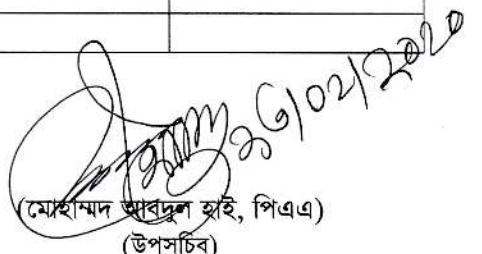 ২৬/০২/২০২০
(মোহাম্মদ আবদুল হাই, পিএএ)
(উপসচিব)